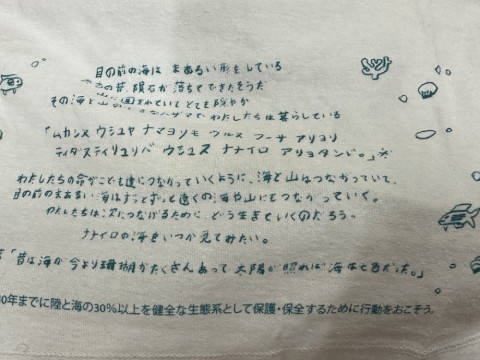 目の前の海は まあるい形をしている
の昔、隕石が落ちてできたそうだ
その海と山に囲まれていてとても穏やか
ハザマで わたしたちは暮らしている
「ムカシヌ ウシュヤ ナマヨリモ ウルヌ フーサ アリヨリ
ティダヌ ティリュリバ ウシュヌ ナナイロ アリヨタンド。」
わたしたちの命がこども達につながっていくように、海と山はつながっていて、
目の前のまあるい海はずっとずっと遠くの海や山にもつながっていて。
わたしたちは次につなげるために、どう生きていくのだろう。
ナナイロの海をいつか見てみたい。
「昔は海が今より珊瑚がたくさんあって 太陽が照れば 海は七色だった。」
0年までに陸と海の30%以上を健全な生態系として保護・保全するために行動をおこそう。